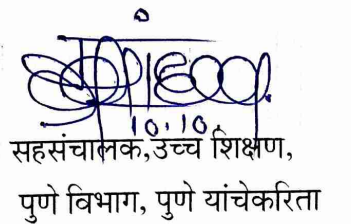 10.10.
सहसंचालक,उच्च शिक्षण,
पुणे विभाग, पुणे यांचेकरिता